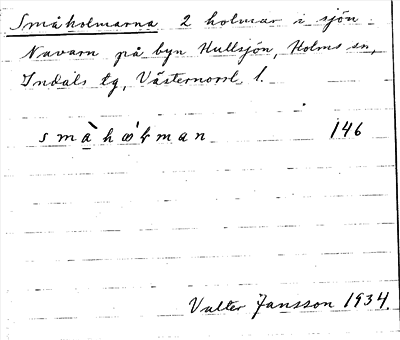 Småholmarna 2 holmar i sjön
Navarn på byn Hullsjön, Holms sn,
Indals tg, Västernorrl. l.
146
Valter Jansson 1934.